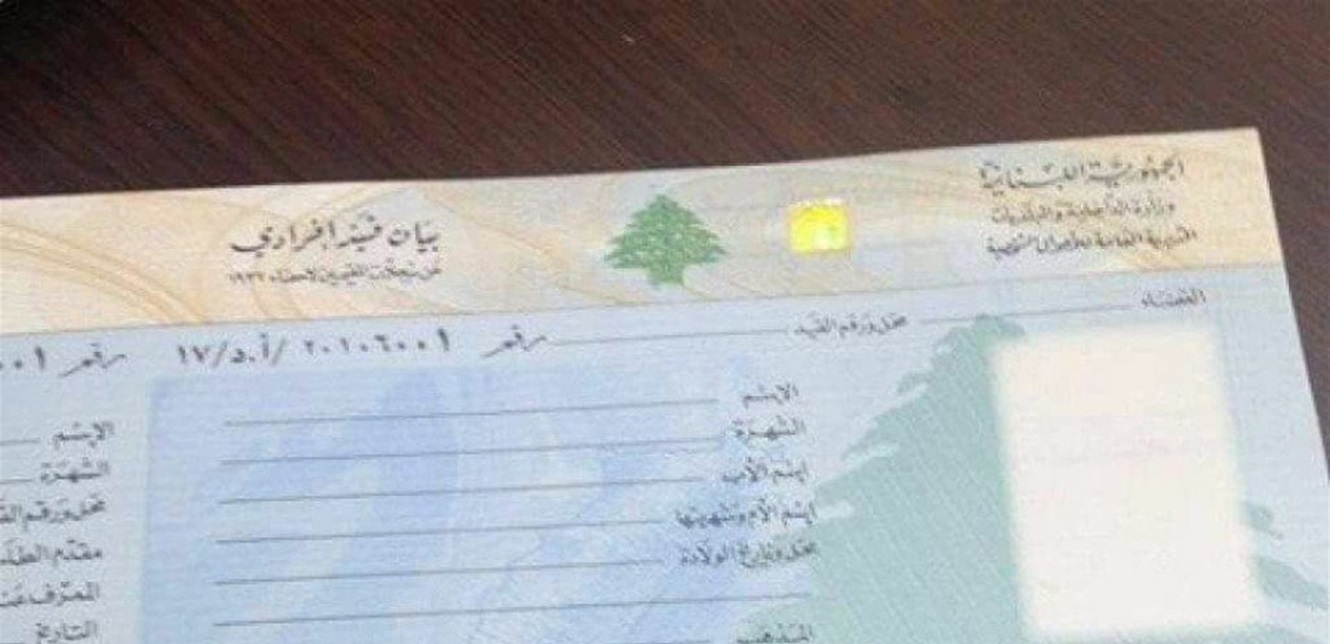 الجمهورية اللبنانية
وزارة الداخلية والبلديات
المديرية العامة للأحوال الشخصية
بيان قيد إفرادي
عن سجلات المقيمين لإحصاء ١٩٣٢
القضاء
محل ورقم القيد
رقم ٢٠١٠٦٠٠١ /أ.د/١٧
رقم
الإسم
الشهرة
إسم الأب
إسم الأم وشهرتها
محل وتاريخ الولادة
المذهب
الإسم
الشهرة
محل ورقم
مقدم
المعرّف
التاريخ